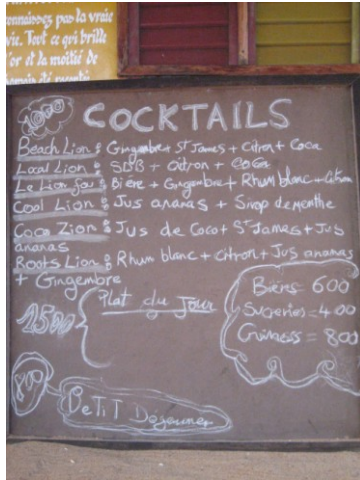 connaissez pas la vraie
vie. Tout ce qui brille
d'or et la moitié de
1000
COCKTAILS
Beach Lion : Gingembre + St James + Citron + Coca
Local Lion : SDB + Citron + Coca
Le Lion fou : Bière + Gingembre + Rhum blanc + Citron
Cool Lion : Jus ananas + Sirop de menthe
Coco Zion : Jus de Coco + St James + Jus
ananas
Roots Lion : Rhum blanc + citron + Jus ananas
+ Gingembre
1500 { Plat du Jour
Bière = 600
Sucreries = 400
Guiness = 800
800
Petit Dejeuner